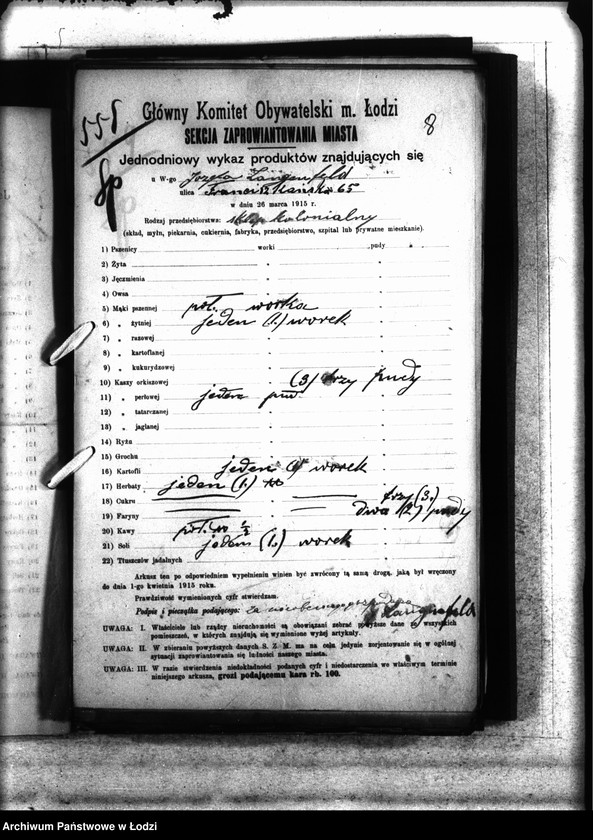 558
8
Sp
Główny Komitet Obywatelski m. Łodzi
SEKCJA ZAPROWIANTOWANIA MIASTA
Jednodniowy wykaz produktów znajdujących się
u W-go Józefa Langenfeld
ulica Franciszkańska 65
w dniu 26 marca 1915 r.
Rodzaj przedsiębiorstwa: sklep kolonialny
(skład, młyn, piekarnia, cukiernia, fabryka, przedsiębiorstwo, szpital lub prywatne mieszkanie).
1) Pszenicy worki pudy
2) Żyta " "
3) Jęczmienia " "
4) Owsa " "
5) Mąki pszennej pół worka
6) " żytniej jeden (1.) worek
7) " razowej " "
8) " kartoflanej " "
9) " kukurydzowej " "
10) Kaszy orkiszowej (3) trzy pudy
11) " perłowej jeden pud
12) " tatarczanej " "
13) " jaglanej " "
14) Ryżu " "
15) Grochu " "
16) Kartofli jeden worek
17) Herbaty jeden (1.)
18) Cukru trzy (3.)
19) Faryny dwa (2.) pudy
20) Kawy pół 1/2
21) Soli jeden (1.) worek
22) Tłuszczów jadalnych " "
Arkusz ten po odpowiednim wypełnieniu winien być zwrócony tą samą drogą, jaką był wręczony
do dnia 1-go kwietnia 1915 roku.
Prawdziwość wymienionych cyfr stwierdzam.
Podpis i pieczątka podającego: Langenfeld
UWAGA: I. Właściciele lub rządcy nieruchomości są obowiązani zebrać powyższe dane we wszystkich
pomieszczeń, w których znajdują się wymienione wyżej artykuły.
UWAGA: II. W zbieraniu powyższych danych S. Z. M. ma na celu jedynie zorjentowanie się w ogólnej
sytuacji zaprowiantowania się ludności naszego miasta.
UWAGA: III. W razie stwierdzenia niedokładności podanych cyfr i niedostarczenia we właściwym terminie
niniejszego arkusza, grozi podającemu kara rb. 100.
Archiwum Państwowe w Łodzi